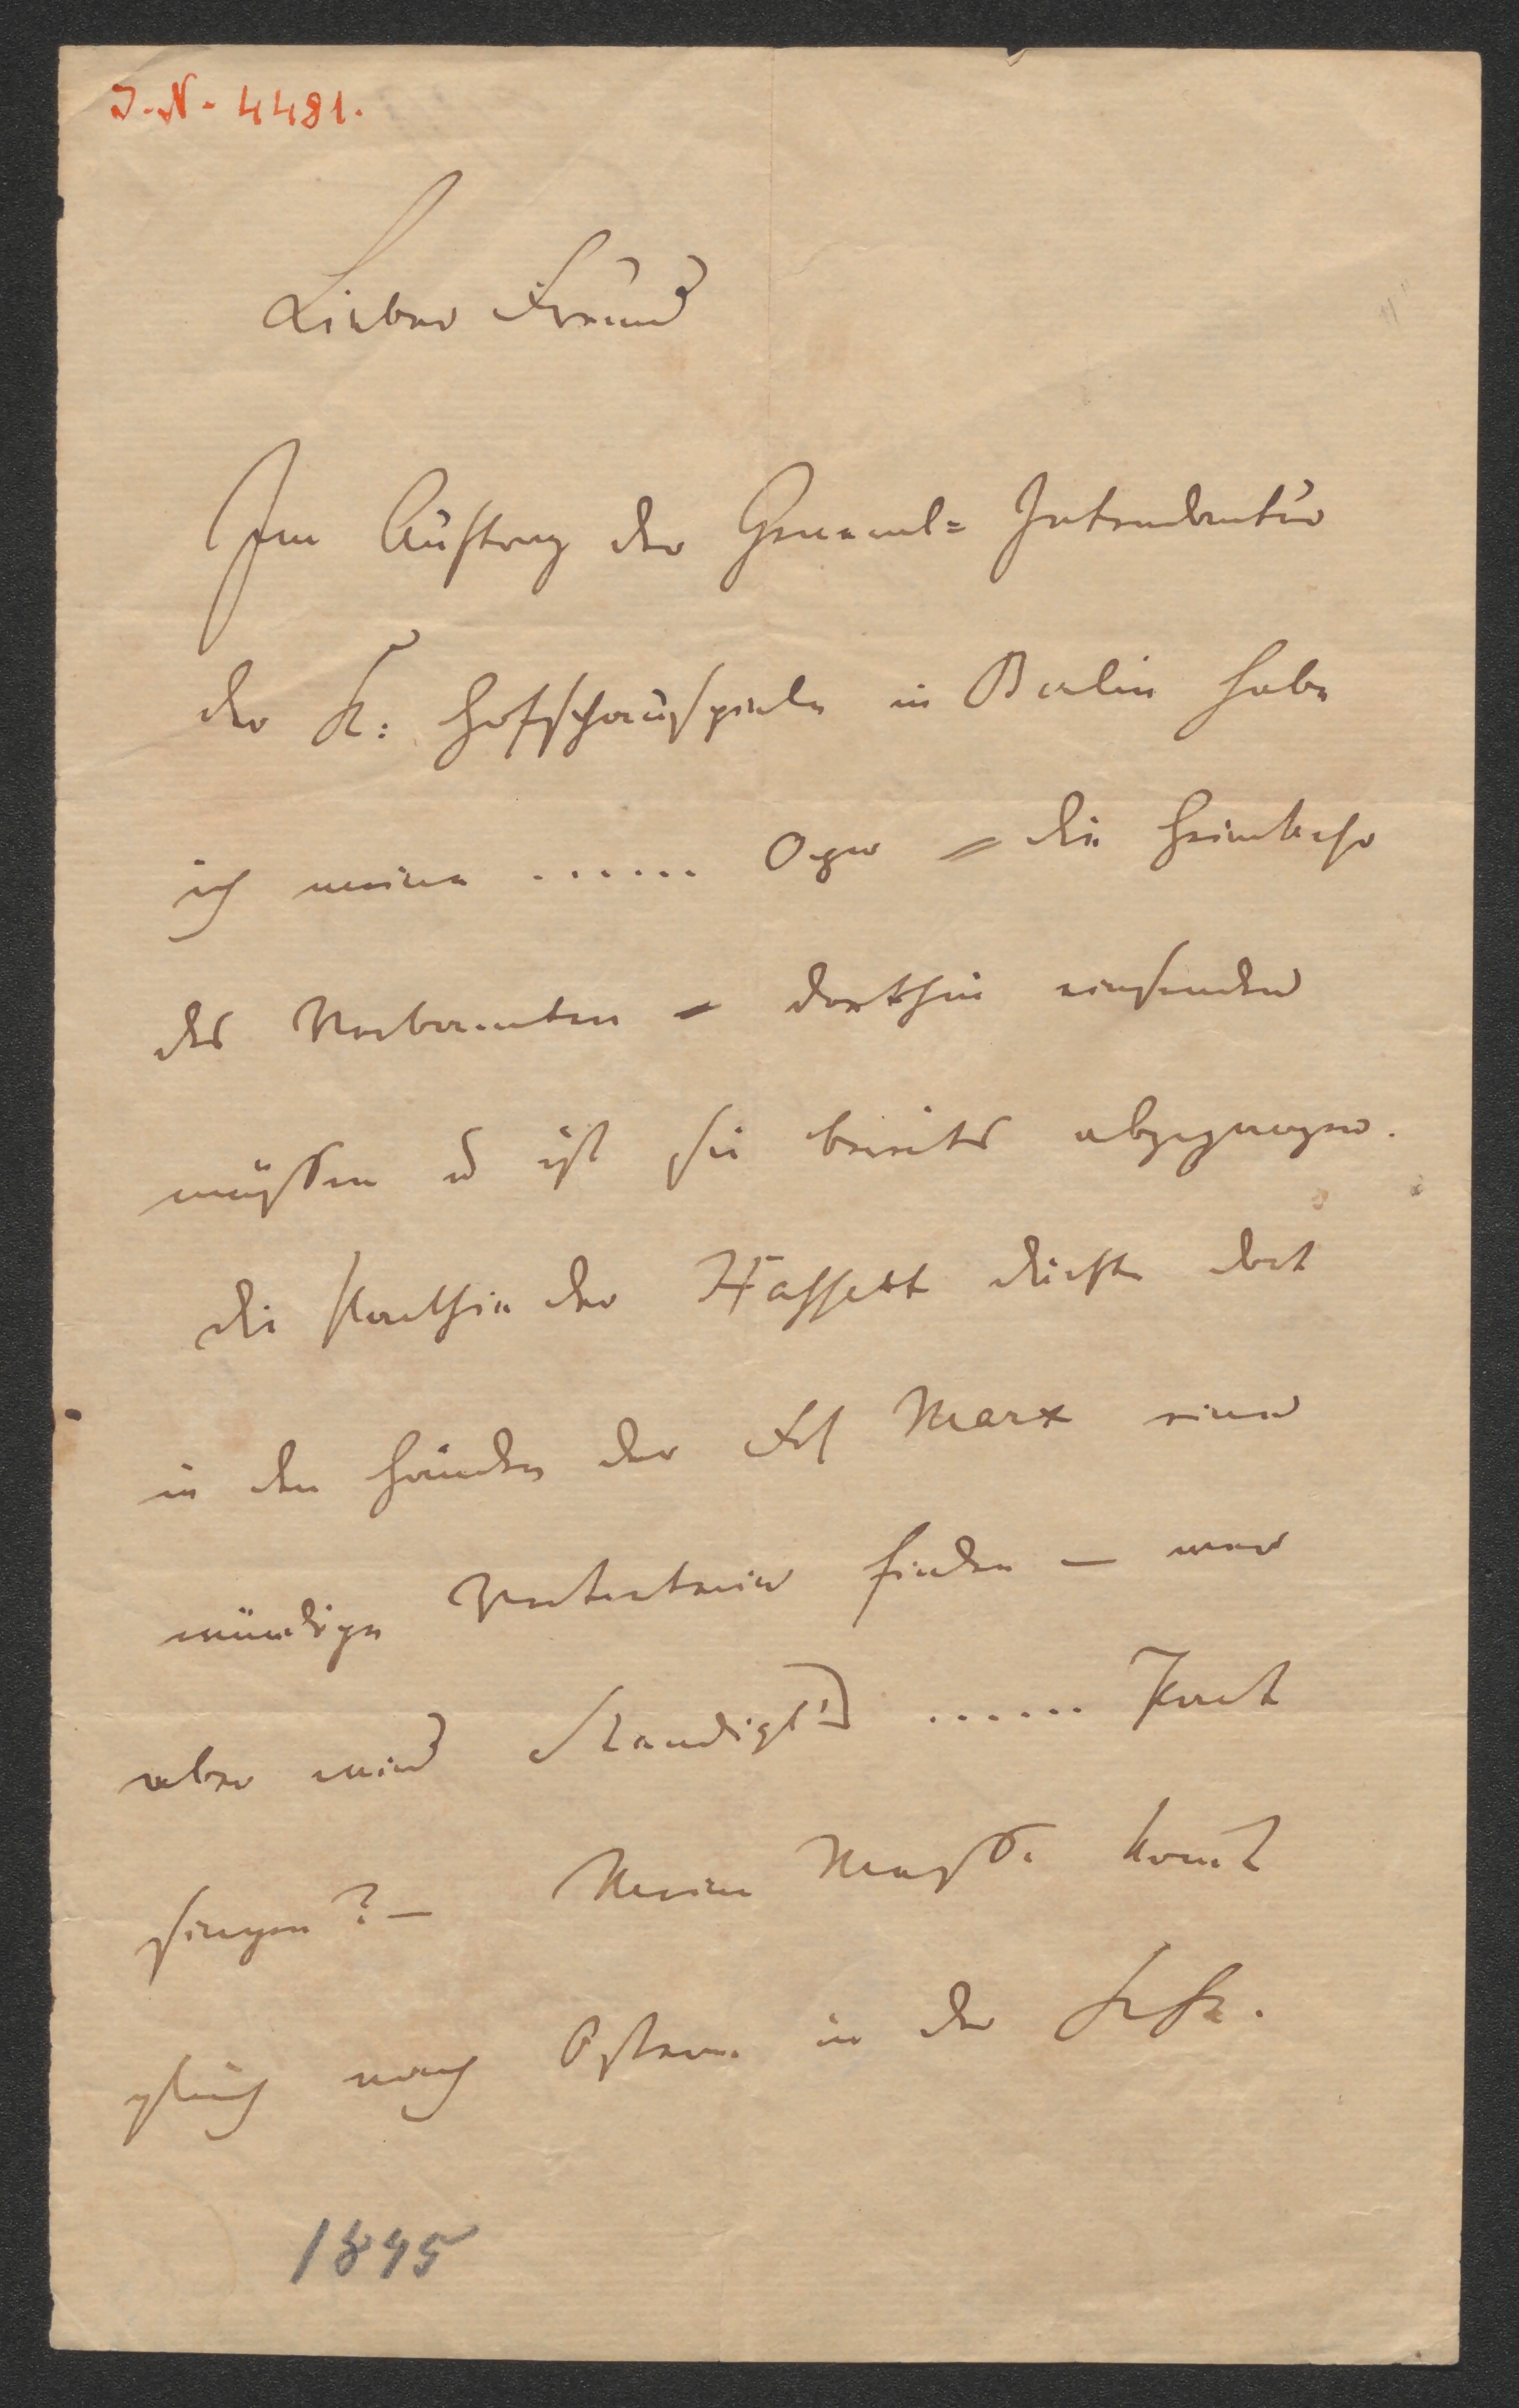 I. N. 4481.
Lieber Freund
Im Auftrag der General= Intendantur
der K: Hofschauspiele in Berlin habe
ich meine ...... Oper = die Heimkehr
des Verbannten = dorthin einsenden
müssen u ist sie bereits abgegangen.
die Parthie der Hasselt dürfte dort
in den Händen der Frl Marx eine
würdige Vertreterin finden — wer
aber wird Staudigl's ...... Part
singen? — Meine Messe komt
gleich nach Ostern in der
1845